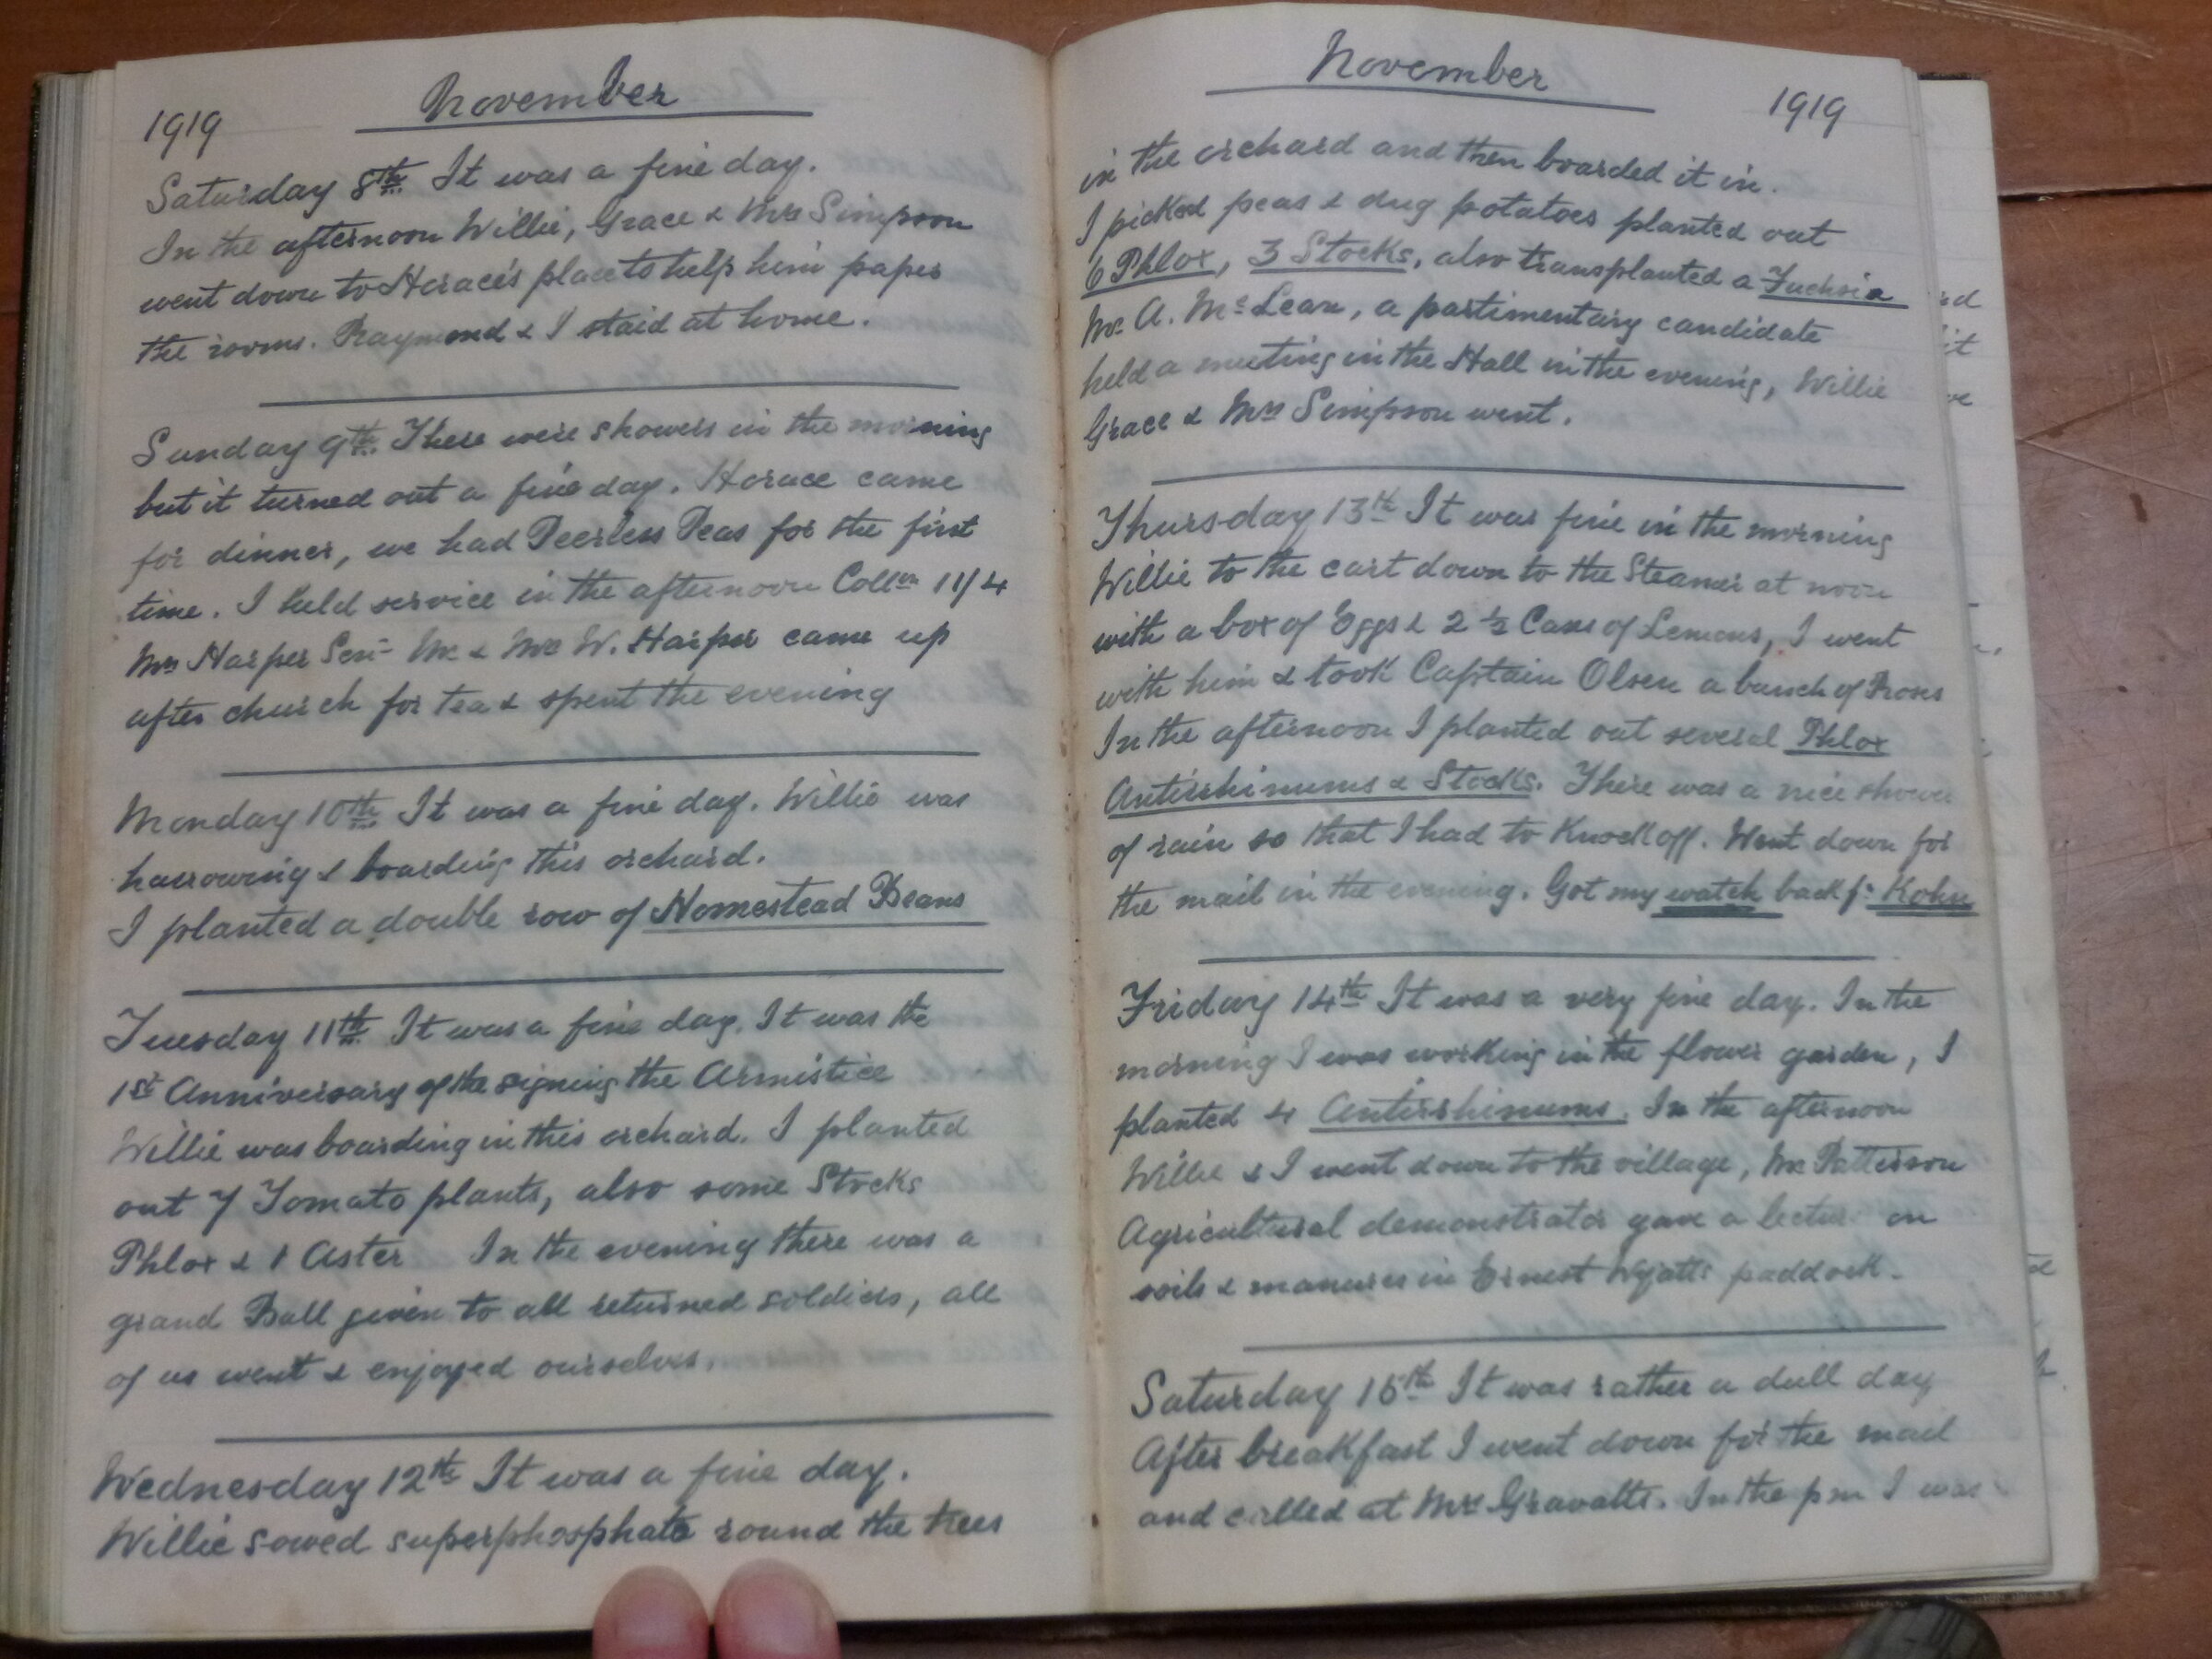 November
1919
Saturday 8th It was a fine day.
In the afternoon Willie, Grace & Mrs Simpson
went down to Horace's place to help him paper
the rooms. Raymond & I staid at home.
Sunday 9th. There were showers in the morning
but it turned out a fine day. Horace came
for dinner, we had Peerless Peas for the first
time. I held service in the afternoon Collen 11/4
Mrs Harper Senr Mr & Mrs W. Harper came up
after church for tea & spent the evening
Monday 10th It was a fine day. Willie was
harrowing & boarding this orchard.
I planted a double row of Homestead Beans
Tuesday 11th. It was a fine day. It was the
1st Anniversary of the signing the Armistice
Willie was boarding in this orchard. I planted
out 7 Tomato plants, also some Stocks
Phlox & 1 Aster In the evening there was a
grand Ball given to all returned soldiers, all
of us went & enjoyed ourselves.
Wednesday 12th It was a fine day.
Willie sowed superphosphate round the trees
November
1919
in the orchard and then boarded it in.
I picked peas & dug potatoes planted out
6 Phlox, 3 Stocks, also transplanted a Fuchsia
Mr A. McLean, a partimentary candidate
held a meeting in the Hall in the evening, Willie
Grace & Mrs Simpson went.
Thursday 13th It was fine in the morning
Willie to the cart down to the Steamer at noon
with a box of Eggs & 2 ½ Cases of Lemons, I went
with him & took Captain Olsen a bunch of Roses
In the afternoon I planted out several Phlox
Antirrhinums & Stocks. There was a nice shower
of rain so that I had to Knock off. Went down for
the mail in the evening. Got my watch back fr Kohn
Friday 14th It was a very fine day. In the
morning I was working in the flower garden, I
planted 4 Antirrhinums. In the afternoon
Willie & I went down to the village, Mr Patterson
Agricultural demonstrator gave a lecture on
soils & manures in Ernest Wyatts paddock.
Saturday 15th It was rather a dull day
After breakfast I went down for the mail
and called at Mrs Gravatts. In the pm I was